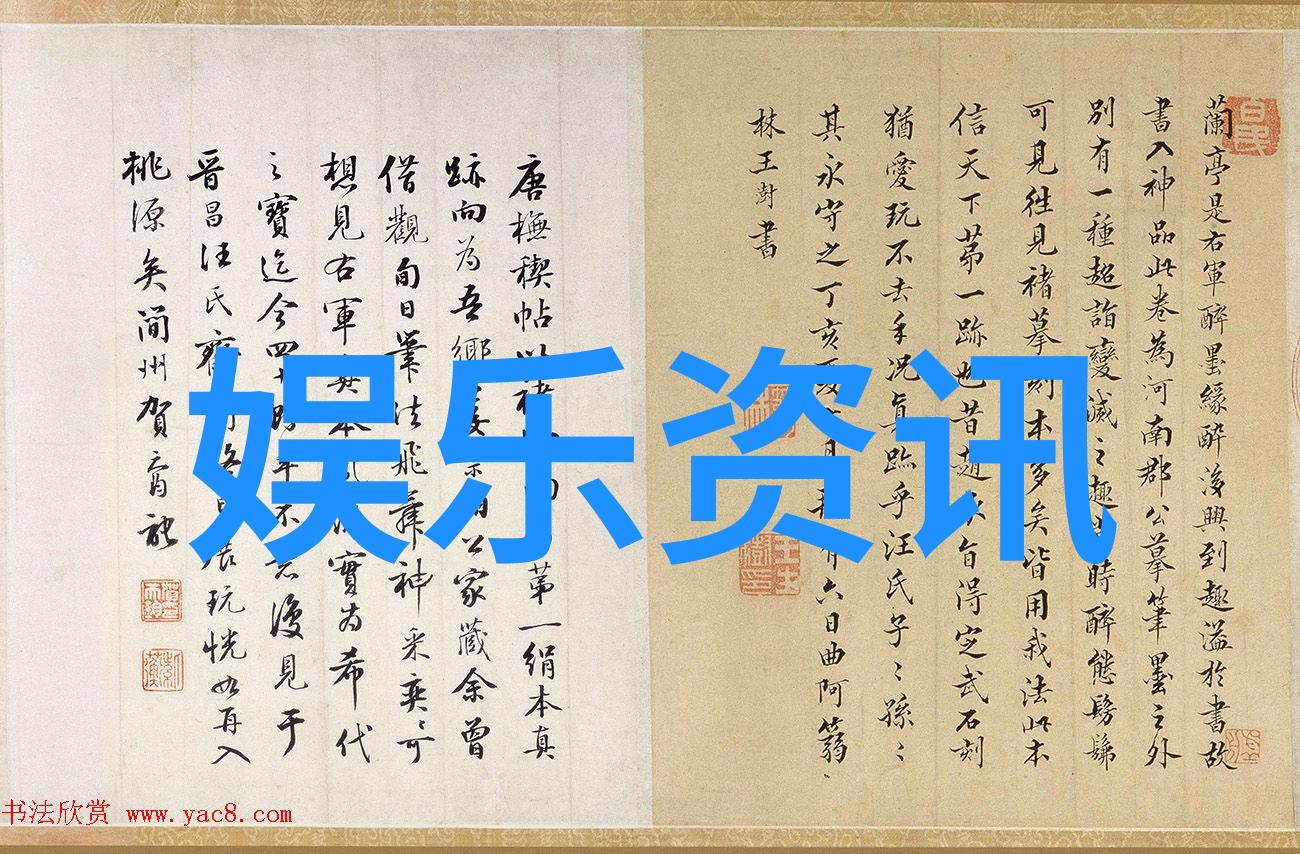 蘭亭是右軍醉墨緣醉後興到趣溢於書故
書入神品此卷為河南郡公摹筆墨之外
別有一種超詣變滅之趣時醉態髣髴
可見往見褚摹刻本多矣皆用我法此本
信天下苐一跡也昔趙子旨得定武石刻
猶愛玩不去手况真跡乎汪氏子〻孫〻
其永守之丁亥夏月有六日曲阿蒻
林王澍書
唐橅稧帖以褚苐一絹本真
跡向為吾鄉家藏余曾
借觀旬日筆法飛舞神采奕〻可
想見右軍實為希代
之寶迄今四十年不意復見于
晉昌汪氏齋展玩恍如再入
桃源矣蘭州賀
娱乐资讯
书法欣赏 www.yac8.com